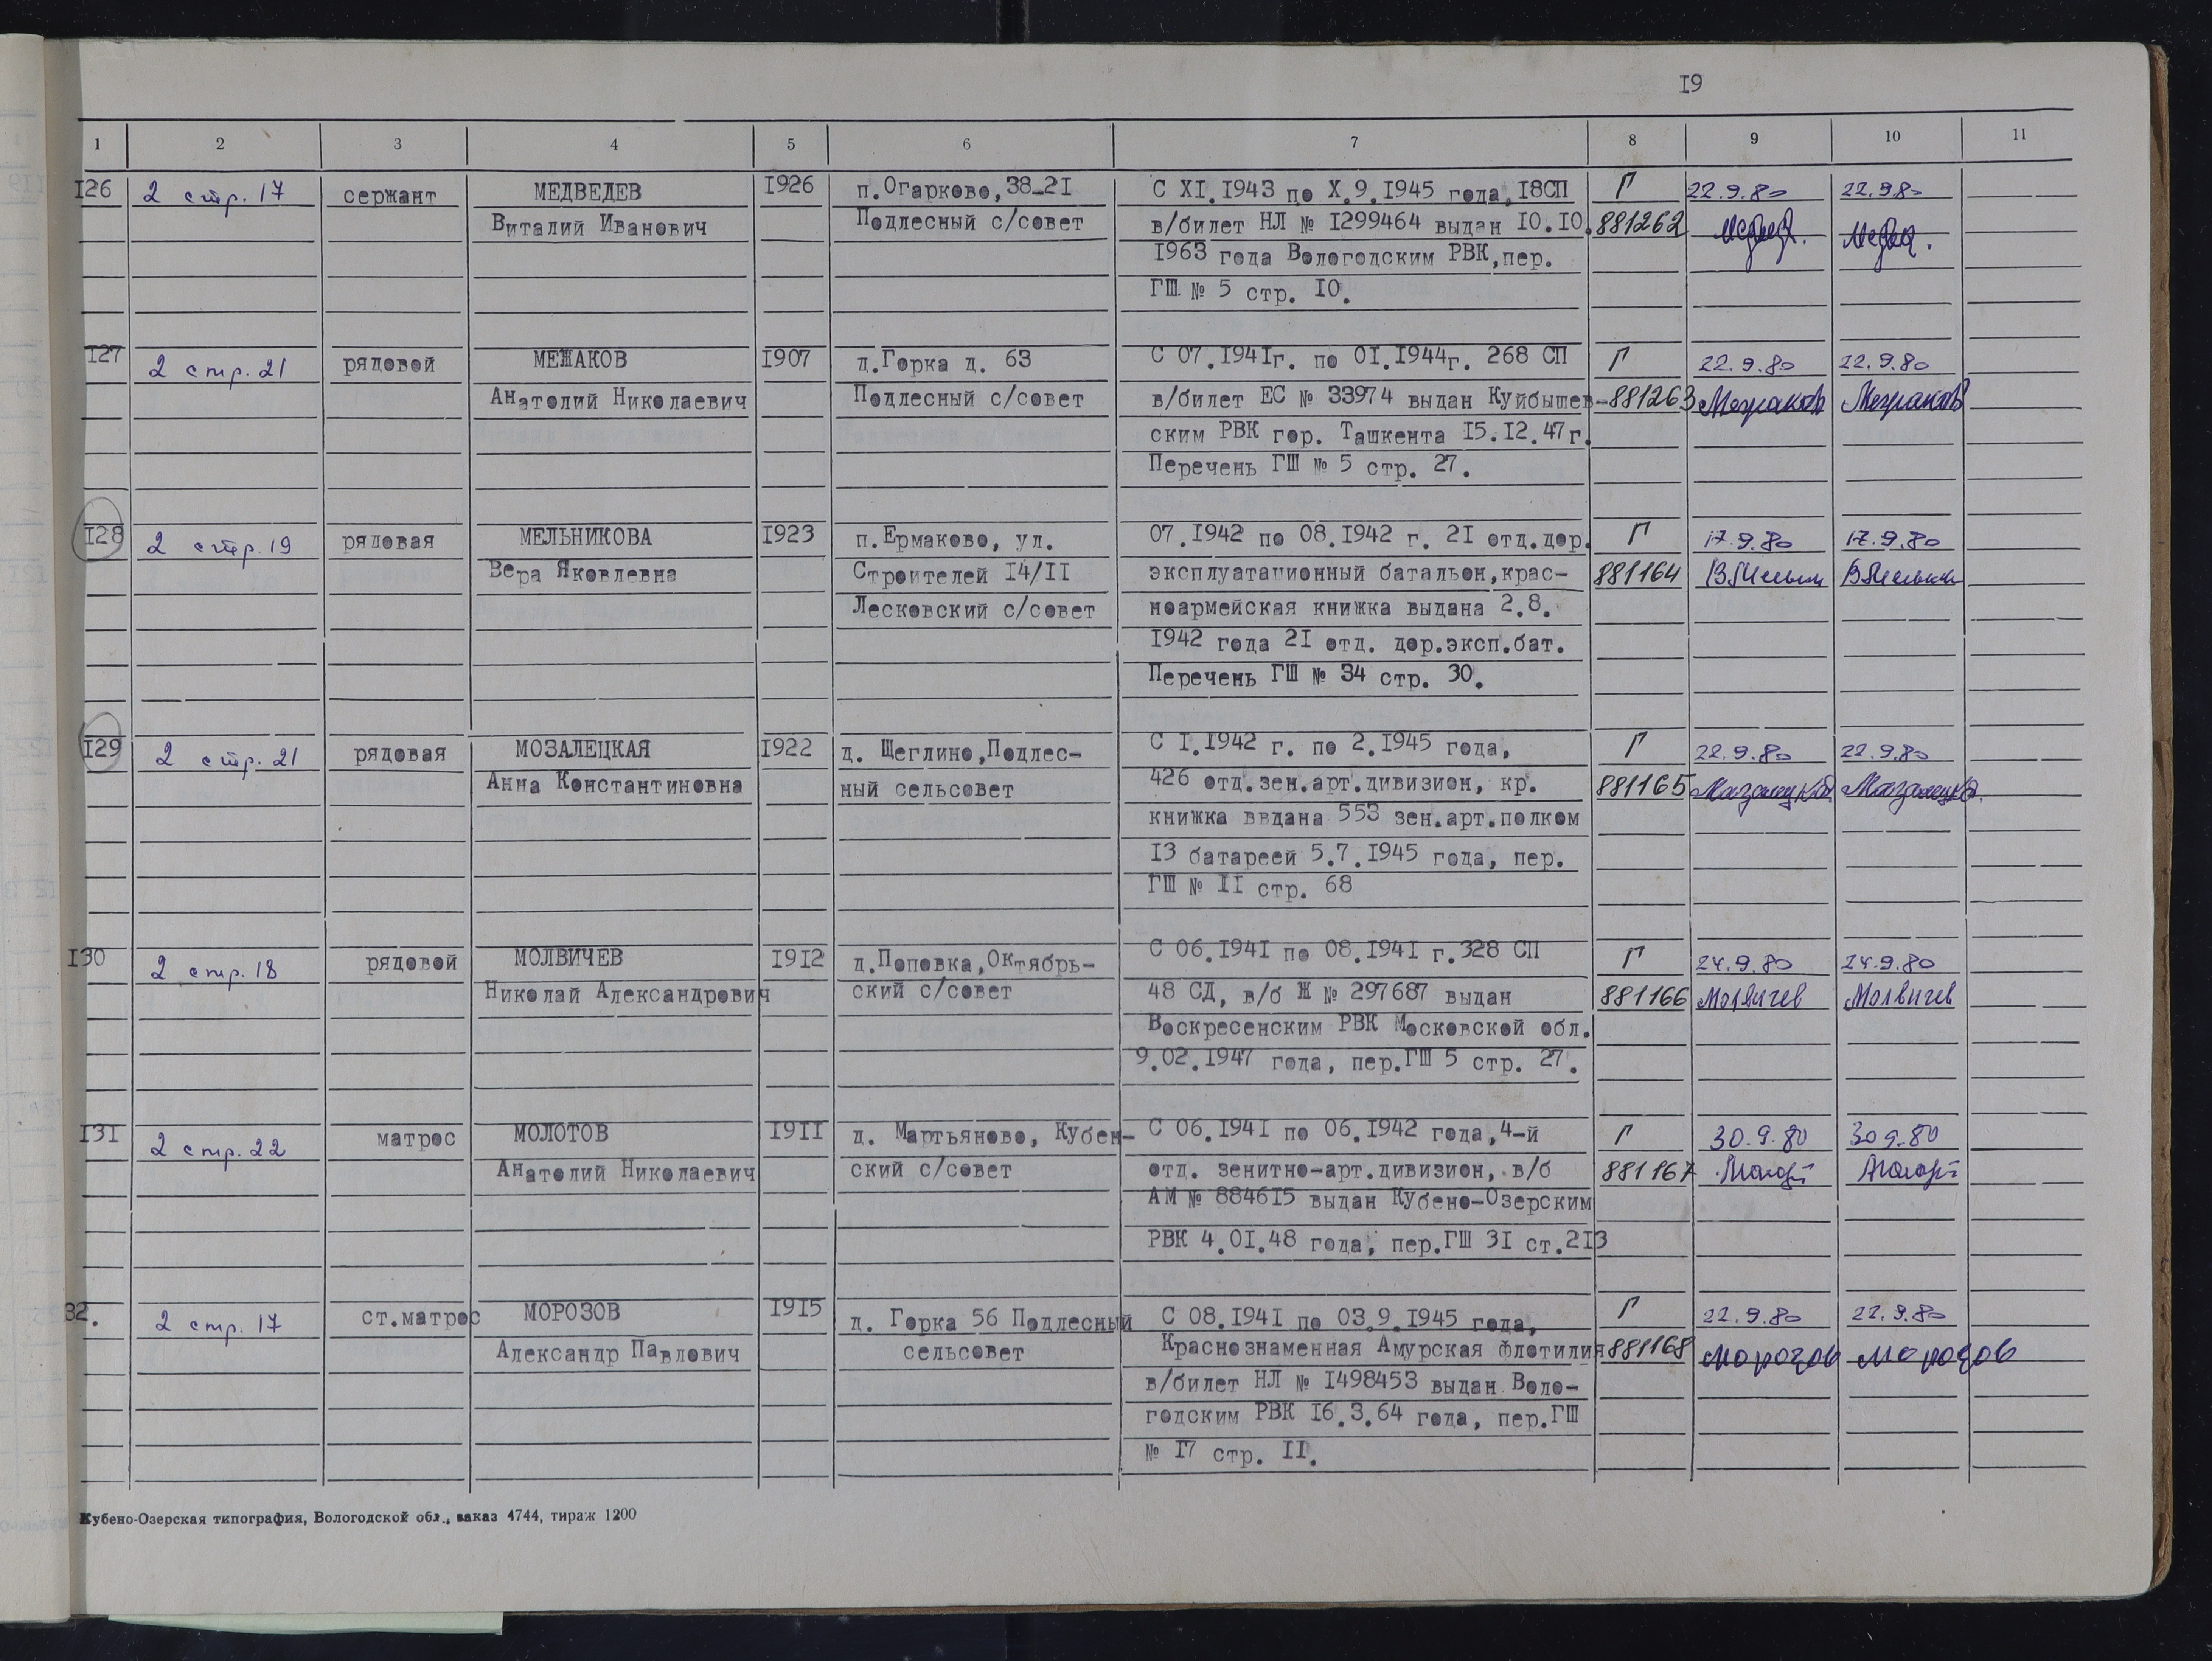 19
1 2 3 4 5 6 7 8 9 10 11
126 2 стр. 17 сержант МЕДВЕДЕВ 1926 п.Огарково,38-21 С XI.1943 по X.9.1945 года,18СП Г 22.9.80 22.9.80
Виталий Иванович Подлесный с/совет в/билет НЛ № 1299464 выдан 10.10. 881262
1963 года Вологодским РВК,пер.
ГШ № 5 стр. 10.
127 2 стр. 21 рядовой МЕЖАКОВ 1907 д.Горка д. 63 С 07.1941г. по 01.1944г. 268 СП Г 22.9.80 22.9.80
Анатолий Николаевич Подлесный с/совет в/билет ЕС № 33974 выдан Куйбышев- 881263 Межаков Межаков
ским РВК гор. Ташкента 15.12.47г.
Перечень ГШ № 5 стр. 27.
128 2 стр. 19 рядовая МЕЛЬНИКОВА 1923 п.Ермаково, ул. 07.1942 по 08.1942 г. 21 отд.дор. Г 17.9.80 17.9.80
Вера Яковлевна Строителей 14/11 эксплуатационный батальон,крас- 881164
Лесковский с/совет ноармейская книжка выдана 2.8.
1942 года 21 отд. дор.эксп.бат.
Перечень ГШ № 34 стр. 30.
129 2 стр. 21 рядовая МОЗАЛЕЦКАЯ 1922 д. Щеглино,Подлес- С 1.1942 г. по 2.1945 года, Г 22.9.80 22.9.80
Анна Константиновна ный сельсовет 426 отд.зен.арт.дивизион, кр. 881165
книжка ввдана 553 зен.арт.полком
13 батареей 5.7.1945 года, пер.
ГШ № 11 стр. 68
130 2 стр. 18 рядовой МОЛВИЧЕВ 1912 д.Поповка,Октябрь- С 06.1941 по 08.1941 г.328 СП Г 24.9.80 24.9.80
Николай Александрович ский с/совет 48 СД, в/б Ж № 297687 выдан 881166 Молвичев Молвичев
Воскресенским РВК Московской обл.
9.02.1947 года, пер.ГШ 5 стр. 27.
131 2 стр. 22 матрос МОЛОТОВ 1911 д. Мартьяново, Кубен- С 06.1941 по 06.1942 года,4-й Г 30.9.80 30.9.80
Анатолий Николаевич ский с/совет отд. зенитно-арт.дивизион, в/б 881167
АМ № 884615 выдан Кубено-Озерским
РВК 4.01.48 года, пер.ГШ 31 ст.213
32. 2 стр. 17 ст.матрос МОРОЗОВ 1915 д. Горка 56 Подлесный С 08.1941 по 03.9.1945 года, Г 22.9.80 22.9.80
Александр Павлович сельсовет Краснознаменная Амурская флотилия 881168 Морозов Морозов
в/билет НЛ № 1498453 выдан Воло-
годским РВК 16.3.64 года, пер.ГШ
№ 17 стр. 11.
Кубено-Озерская типография, Вологодской обл., заказ 4744, тираж 1200